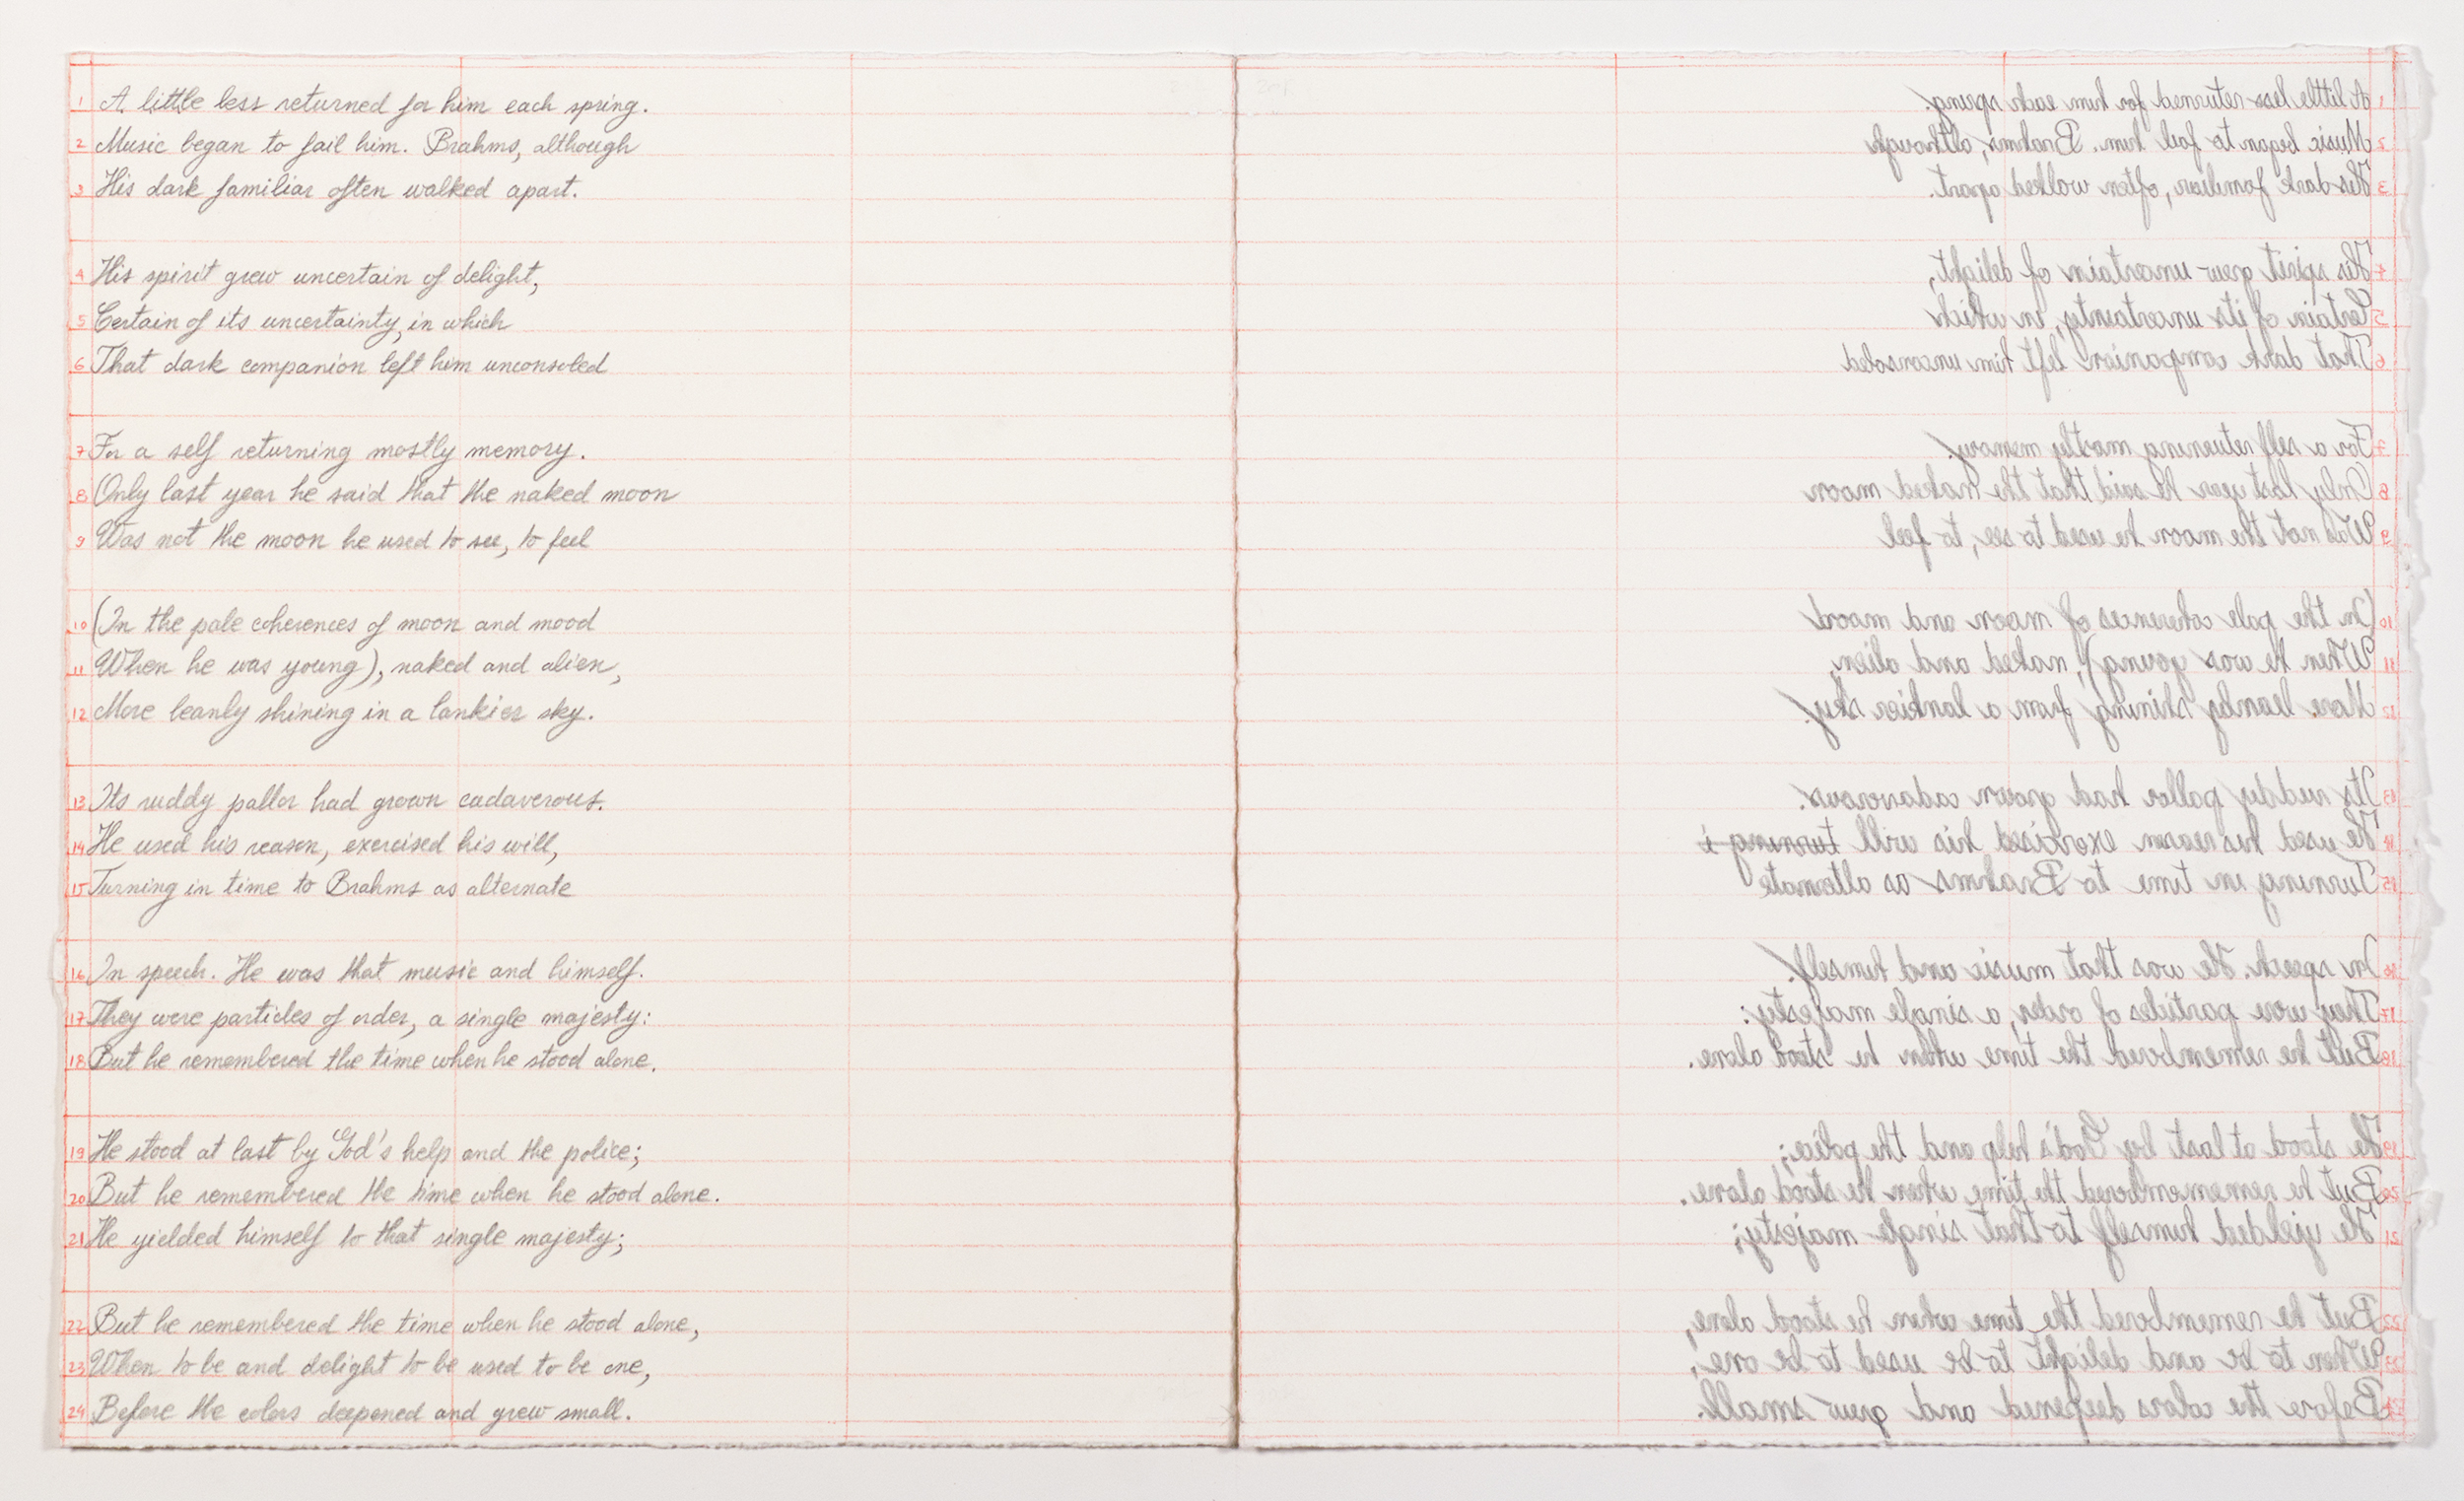 1 A little less returned for him each spring.
2 Music began to fail him. Brahms, although
3 His dark familiar often walked apart.
4 His spirit grew uncertain of delight,
5 Certain of its uncertainty, in which
6 That dark companion left him unconsoled
7 For a self returning mostly memory.
8 Only last year he said that the naked moon
9 Was not the moon he used to see, to feel
10 (In the pale coherences of moon and mood
11 When he was young), naked and alien,
12 More leanly shining in a lankier sky.
13 Its ruddy pallor had grown cadaverous.
14 He used his reason, exercised his will,
15 Turning in time to Brahms as alternate
16 In speech. He was that music and himself.
17 They were particles of order, a single majesty:
18 But he remembered the time when he stood alone.
19 He stood at last by God's help and the police;
20 But he remembered the time when he stood alone.
21 He yielded himself to that single majesty;
22 But he remembered the time when he stood alone,
23 When to be and delight to be used to be one,
24 Before the colors deepened and grew small.
1 A little less returned for him each spring.
2 Music began to fail him. Brahms, although
3 His dark familiar, often walked apart.
4 His spirit grew uncertain of delight,
5 Certain of its uncertainty, in which
6 That dark companion left him unconsoled
7 For a self returning mostly memory.
8 Only last year he said that the naked moon
9 Was not the moon he used to see, to feel
10 (In the pale coherences of moon and mood
11 When he was young), naked and alien,
12 More leanly shining from a lankier sky.
13 Its ruddy pallor had grown cadaverous.
14 He used his reason exercised his will turning i
15 Turning in time to Brahms as alternate
16 In speech. He was that music and himself.
17 They were particles of order, a single majesty:
18 But he remembered the time when he stood alone.
19 He stood at last by God's help and the police;
20 But he remembered the time when he stood alone.
21 He yielded himself to that single majesty;
22 But he remembered the time when he stood alone,
23 When to be and delight to be used to be one,
24 Before the colors deepened and grew small.